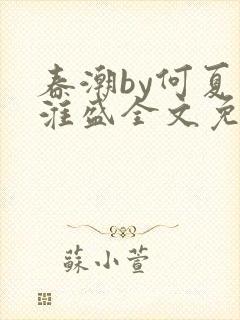 春潮by何夏
淮盛全文免
蘇小萱